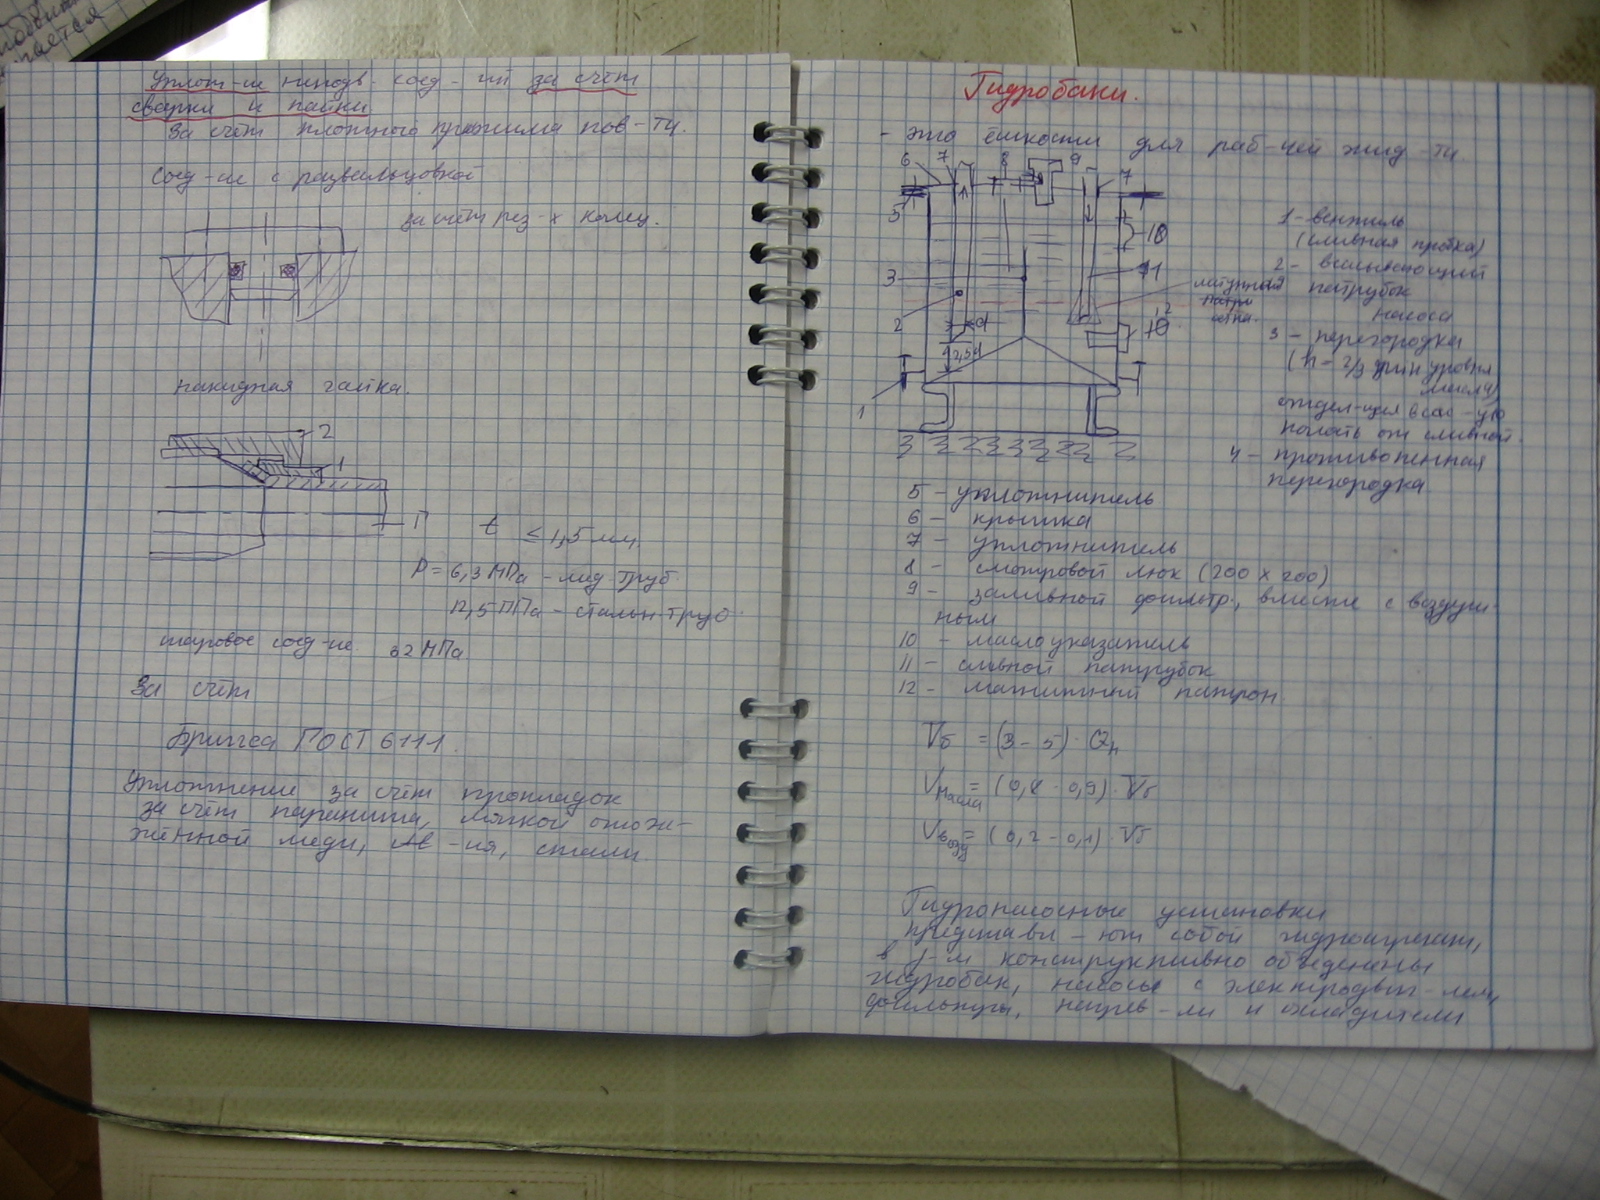 Уплот-ие неподв. соед-ий за счёт
сварки и пайки
За счёт плотного прижима пов-ти.
Соед-ие с развальцовкой
за счёт рез-х колец.
накидная гайка.
2
1
П
t ≤ 1,5 мм.
P = 6,3 МПа - мед. труб
12,5 МПа - стальн. труб
шаровое соед-ие 32 МПа
За счёт
Бриггса ГОСТ 6111.
Уплотнение за счёт прокладок
за счёт паранита, мягкой отож-
жённой меди, ав-ия, стали.
Гидробаки.
- это ёмкости для раб-чей жид-ти
6 7 8 9 7
5
10
3
11
2
d
12
10
2,5d
1
латунная
сетка.
1 - вентиль
(сливная пробка)
2 - всасывающий
патрубок
насоса
3 - перегородка
(h - 2/3 уровня
масла)
отдел-щая всас-ую
полость от сливной.
4 - противопенная
перегородка
5 - уплотнитель
6 - крышка
7 - уплотнитель
8 - смотровой люк (200 x 200)
9 - заливной фильтр, вместе с воздуш-
ным
10 - маслоуказатель
11 - сливной патрубок
12 - магнитный патрон.
Vб = (3 - 5) · Qн
Vмасла = (0,8 - 0,9) · Vб
Vвозд = (0,2 - 0,1) · Vб
Гидронасосные установки
представл-ют собой гидроагрегат,
в конструктивно объеденены
гидробак, насосы с электродвиг-лем,
фильтры, нагрев-ли и охладители